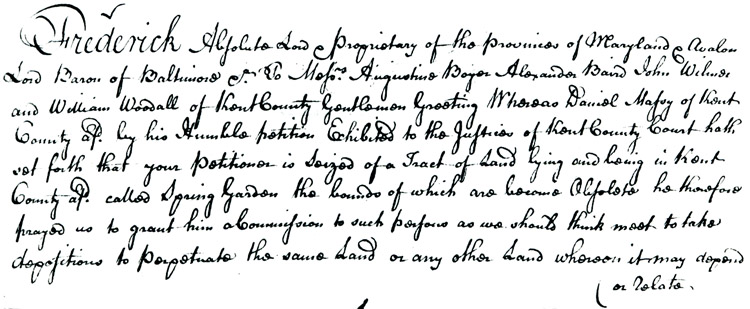 Frederick Absolute Lord & Proprietary of the provinces of Maryland & Avalon
Lord Baron of Baltimore &c. To Messrs. Augustine Boyer Alexander Baird John Wilmer
and William Woodall of Kent County Gentlemen Greeting Whereas Daniel Massy of Kent
County afd. by his Humble petition Exhibited to the Justices of Kent County Court hath
set forth that your Petitioner is Seized of a Tract of Land lying and being in Kent
County afd. called Spring Garden the bounds of which are become Obsolete he therefore
prayed us to grant him a Commission to such persons as we should think meet to take
depositions to perpetuate the same Land or any other Land whereon it may depend
or relate.